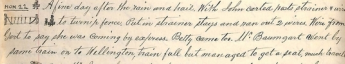 Nov 22 A fine day after the rain and hail. With John carted posts strainers & wire
to turnip fence. Put in strainer stays and ran out 2 wires. Wire from
God to say she was coming by express. Betty came too. Mr Baumgart went by
same train on to Wellington, train full but managed to get a seat, much